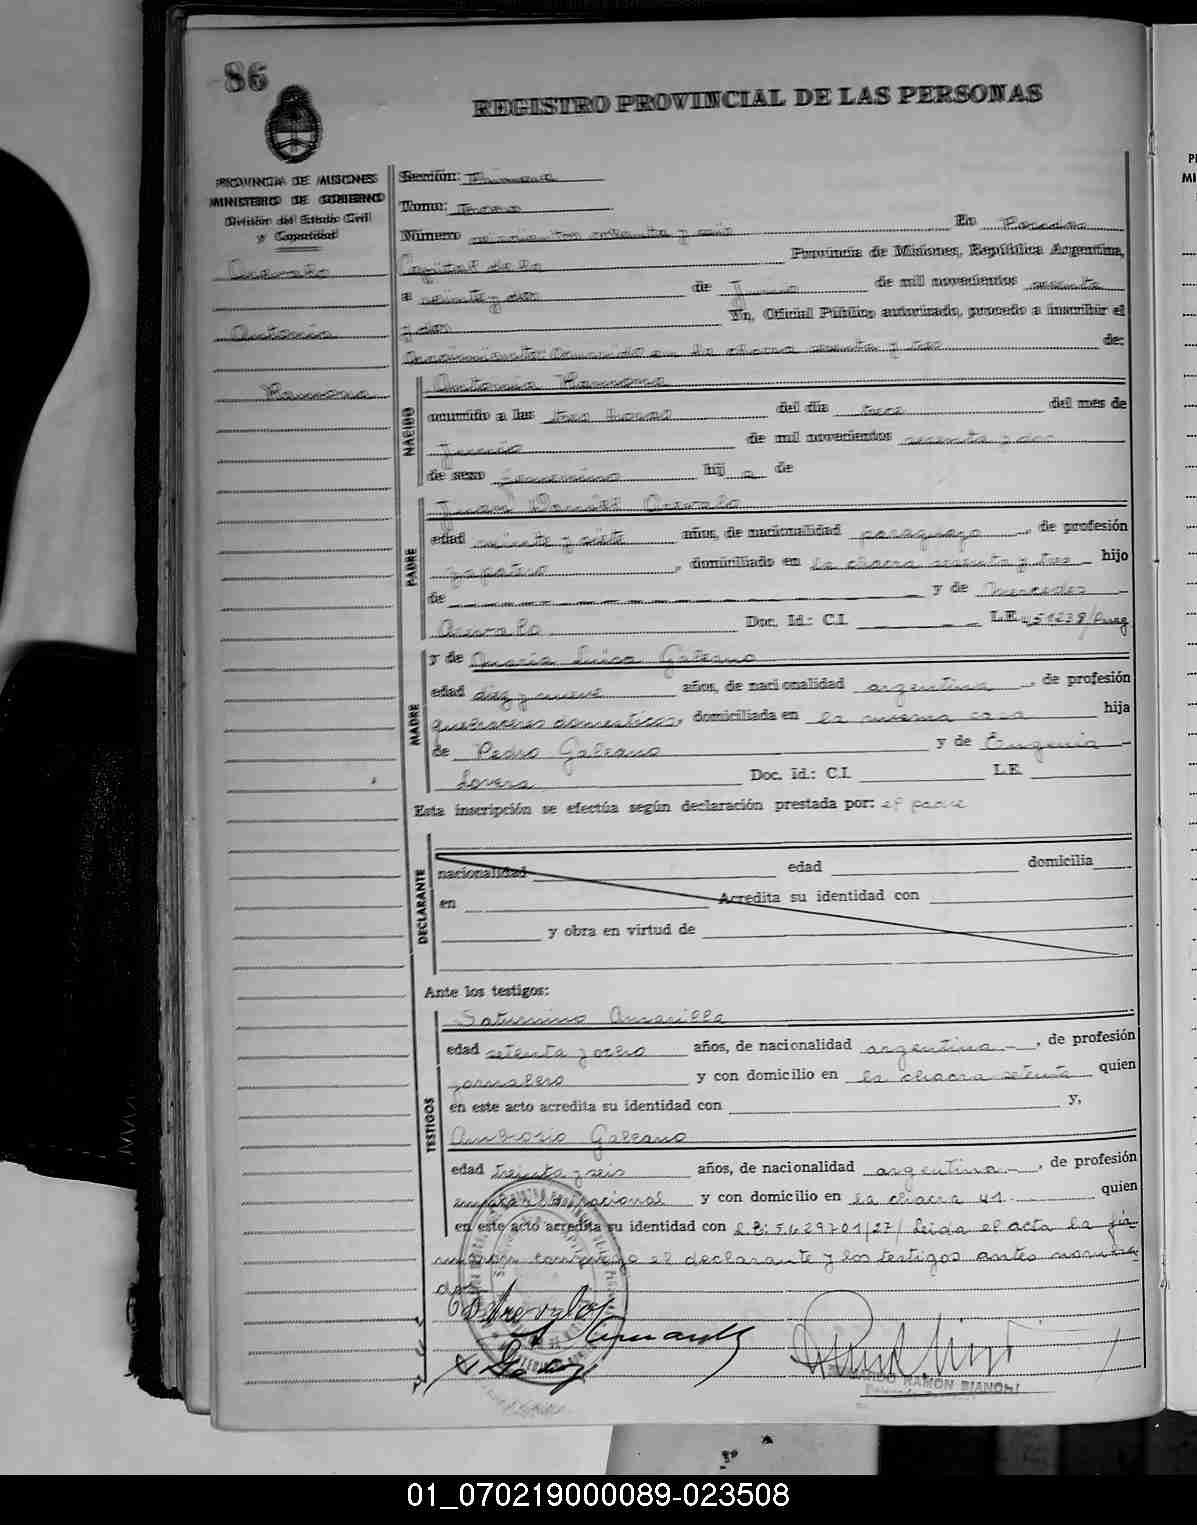 86
REGISTRO PROVINCIAL DE LAS PERSONAS
PROVINCIA DE MISIONES
MINISTERIO DE GOBIERNO
División del Estado Civil
y Capacidad
Arevalo
Antonia
Ramona
Sección: Primera
Tomo:
Número ochenta y seis En Posadas
Capital de la Provincia de Misiones, República Argentina,
a veinte y dos de Junio de mil novecientos sesenta
y dos Yo, Oficial Público autorizado, procedo a inscribir el
Nacimiento: Ocurrido en la chacra sesenta y tres de:
NACIDO
Antonia Ramona
ocurrido a las tres horas del día trece del mes de
Junio de mil novecientos sesenta y dos
de sexo femenino hij a de
PADRE
Juan Daniel Arevalo
edad veinte y siete años, de nacionalidad paraguayo, de profesión
zapatero, domiciliado en la chacra sesenta y tres hijo
de y de Mercedes
Arevalo Doc. Id.: C.I. L.E. 451238/
MADRE
y de María Luisa Galeano
edad diez y nueve años, de nacionalidad argentina, de profesión
quehaceres domesticos, domiciliada en la misma casa hija
de Pedro Galeano y de Eugenia
Lovera Doc. Id.: C.I. L.E.
Esta inscripción se efectúa según declaración prestada por: el padre
DECLARANTE
nacionalidad edad domicilia
en Acredita su identidad con
y obra en virtud de
Ante los testigos:
TESTIGOS
Saturnino Amarilla
edad setenta y ocho años, de nacionalidad argentina, de profesión
jornalero y con domicilio en la chacra setenta quien
en este acto acredita su identidad con y,
Ambrosio Galeano
edad treinta y seis años, de nacionalidad argentina, de profesión
nacional y con domicilio en la chacra 41 quien
en este acto acredita su identidad con L.E: 5.629701/27/ Leida el acta la fir-
conmigo el declarante y los testigos antes nombra
dos
BERNARDO RAMON BIANCHI
01_070219000089-023508